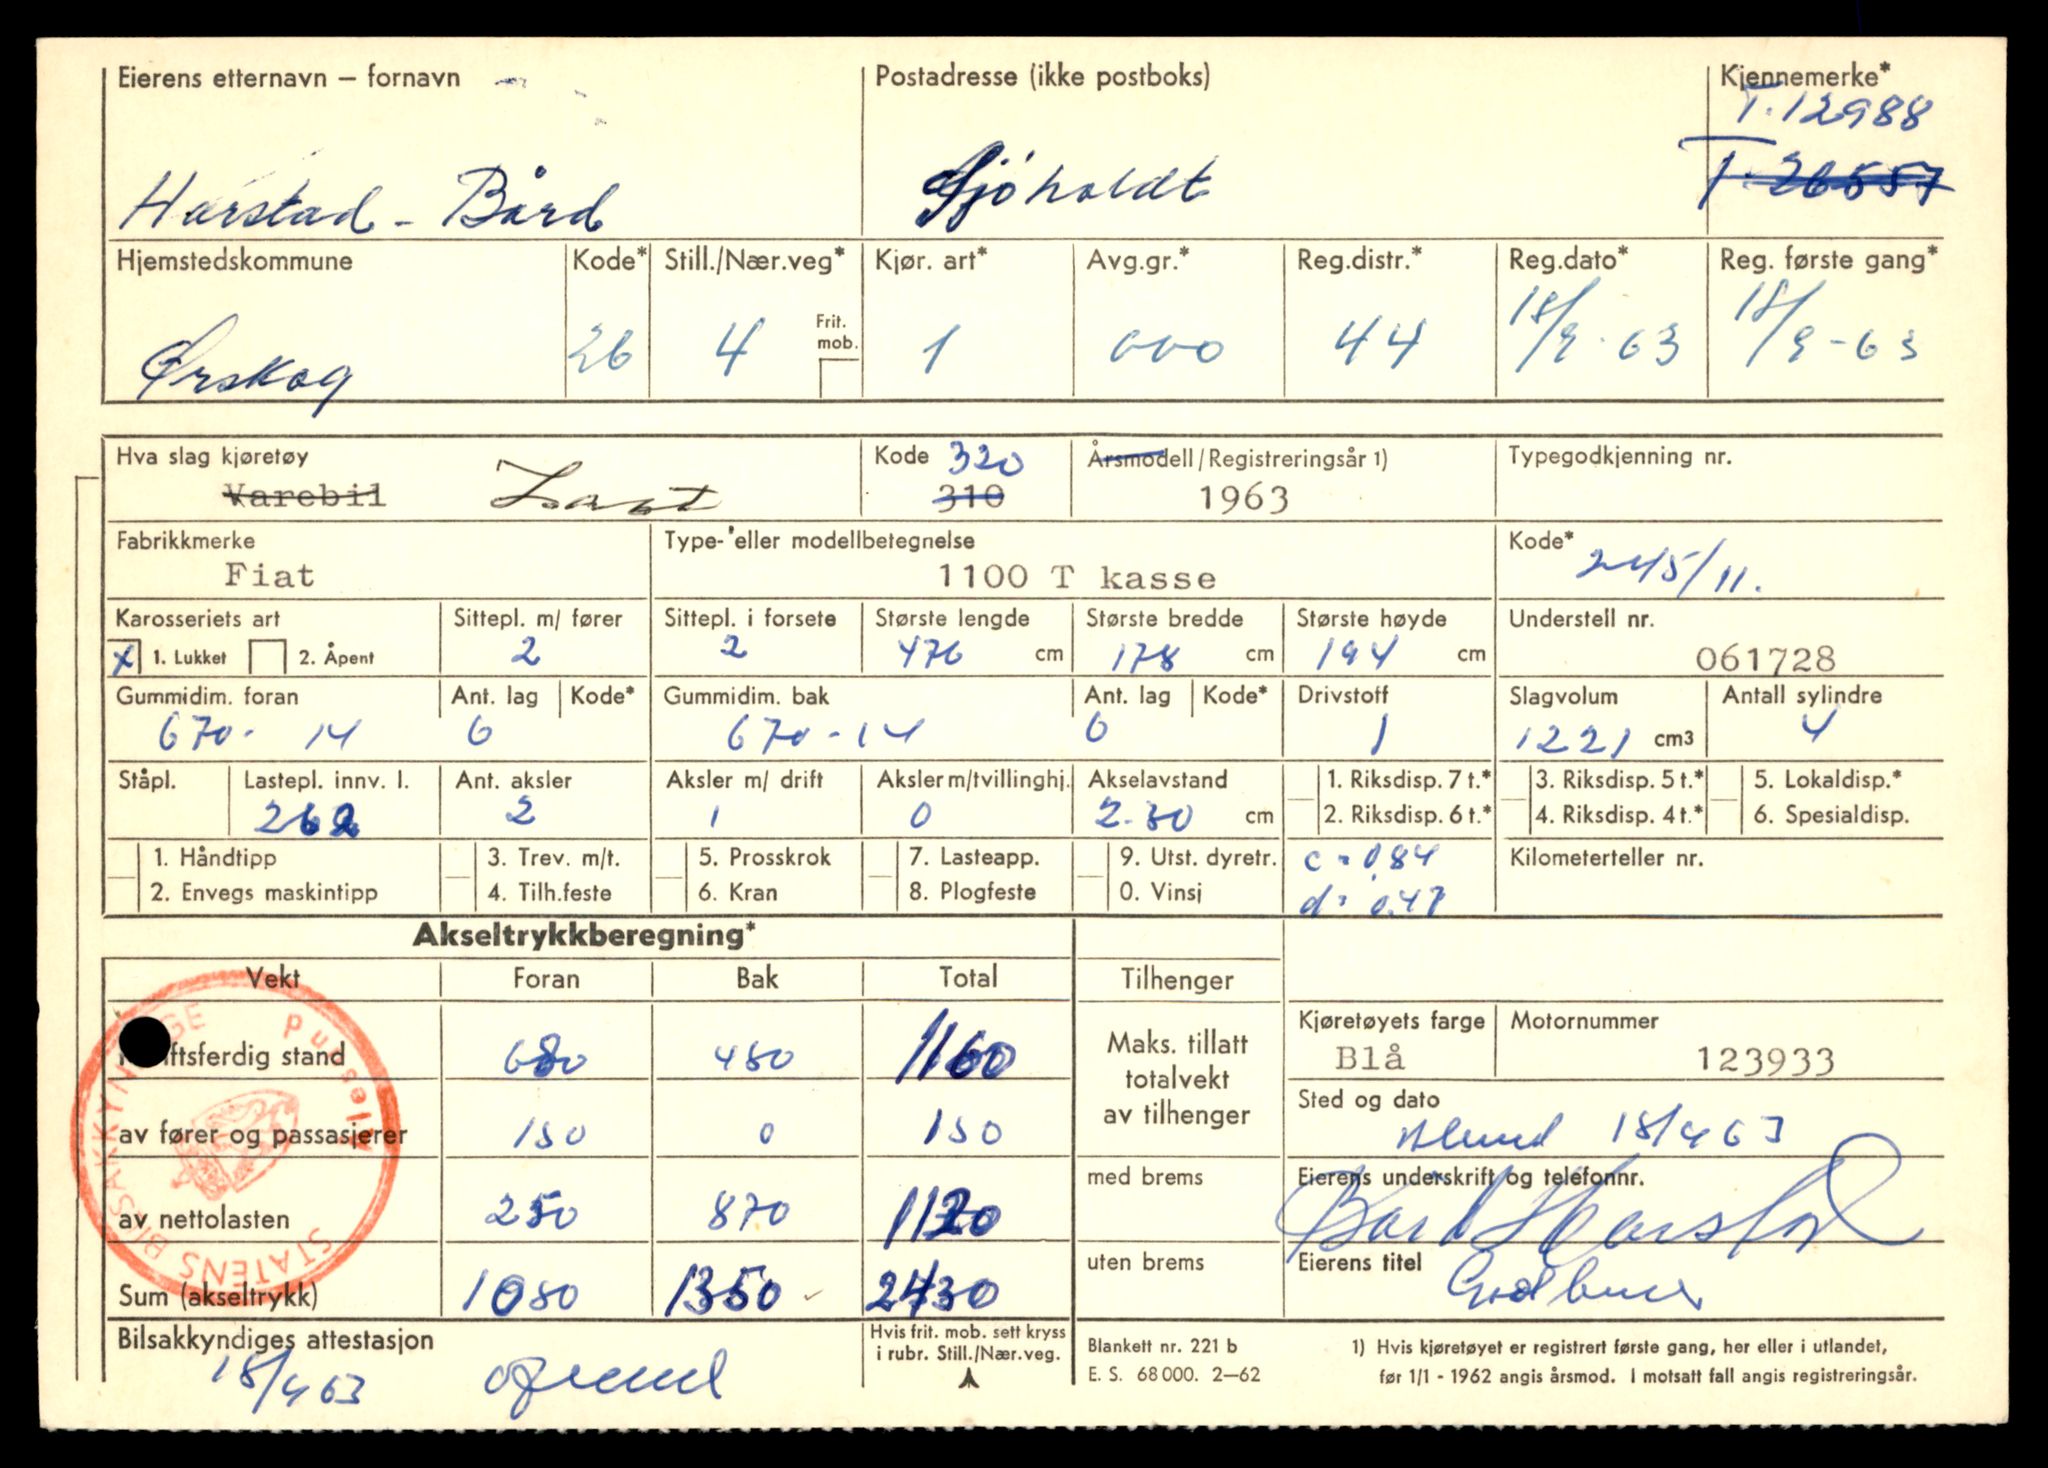 Eierens etternavn – fornavn
Postadresse (ikke postboks)
Kjennemerke*
T. 12988
T-26557
Harstad - Bård
Sjøholdt
Hjemstedskommune
Kode*
Still./Nær.veg*
Kjør. art*
Avg.gr.*
Reg.distr.*
Reg.dato*
Reg. første gang*
Ørskog
26
4
Frit. mob.
1
000
44
18/9-63
18/9-63
Hva slag kjøretøy
Varebil Last
Kode 320
310
Årsmodell/Registreringsår 1)
1963
Typegodkjenning nr.
Fabrikkmerke
Fiat
Type- eller modellbetegnelse
1100 T kasse
Kode*
245/11.
Karosseriets art
x 1. Lukket 2. Åpent
Sittepl. m/ fører
2
Sittepl. i forsete
2
Største lengde
476 cm
Største bredde
178 cm
Største høyde
194 cm
Understell nr.
061728
Gummidim. foran
670 - 14
Ant. lag
6
Kode*
Gummidim. bak
670 - 14
Ant. lag
6
Kode*
Drivstoff
1
Slagvolum
1221 cm3
Antall sylindre
4
Ståpl.
Lastepl. innv. l.
262
Ant. aksler
2
Aksler m/ drift
1
Aksler m/tvillinghj.
0
Akselavstand
2.30 cm
1. Riksdisp. 7 t.*
2. Riksdisp. 6 t.*
3. Riksdisp. 5 t.*
4. Riksdisp. 4 t.*
5. Lokaldisp.*
6. Spesialdisp.
1. Håndtipp
2. Envegs maskintipp
3. Trev. m/t.
4. Tilh.feste
5. Prosskrok
6. Kran
7. Lasteapp.
8. Plogfeste
9. Utst. dyretr.
0. Vinsj
c = 0,84
d = 0.47
Kilometerteller nr.
Akseltrykkberegning*
Vekt Foran Bak Total
iftsferdig stand 680 480 1160
av fører og passasjerer 150 0 150
av nettolasten 250 870 1120
Sum (akseltrykk) 1080 1350 2430
STATENS BILSAKKYNDIGE
Tilhenger
Maks. tillatt
totalvekt
av tilhenger
med brems
uten brems
Kjøretøyets farge
Blå
Motornummer
123933
Sted og dato
18/4 63
Eierens underskrift og telefonnr.
Bård Harstad
Eierens titel
Bilsakkyndiges attestasjon
18/4 63
Hvis frit. mob. sett kryss
i rubr. Still./Nær.veg.
Blankett nr. 221 b
E. S. 68 000. 2–62
1) Hvis kjøretøyet er registrert første gang, her eller i utlandet,
før 1/1 - 1962 angis årsmod. I motsatt fall angis registreringsår.